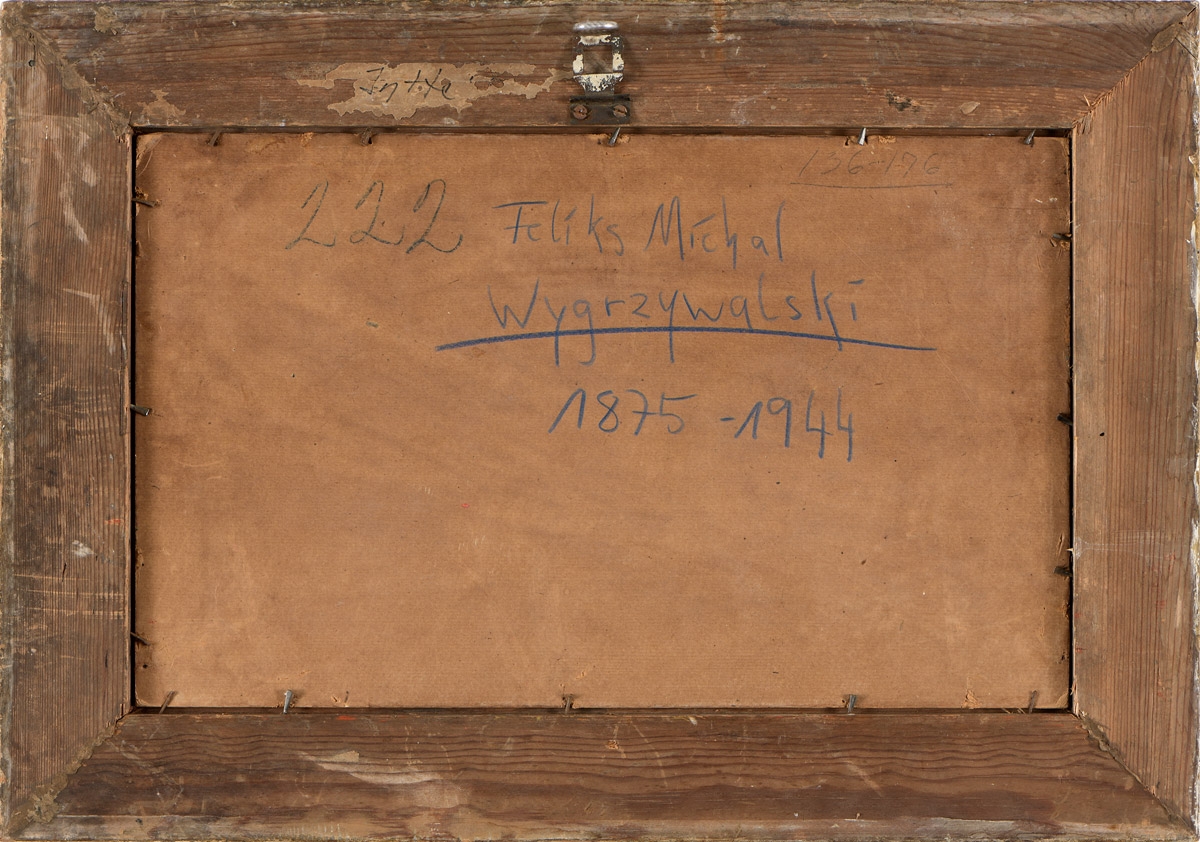 136-176
222 Feliks Michal
Wygrzywalski
1875 - 1944